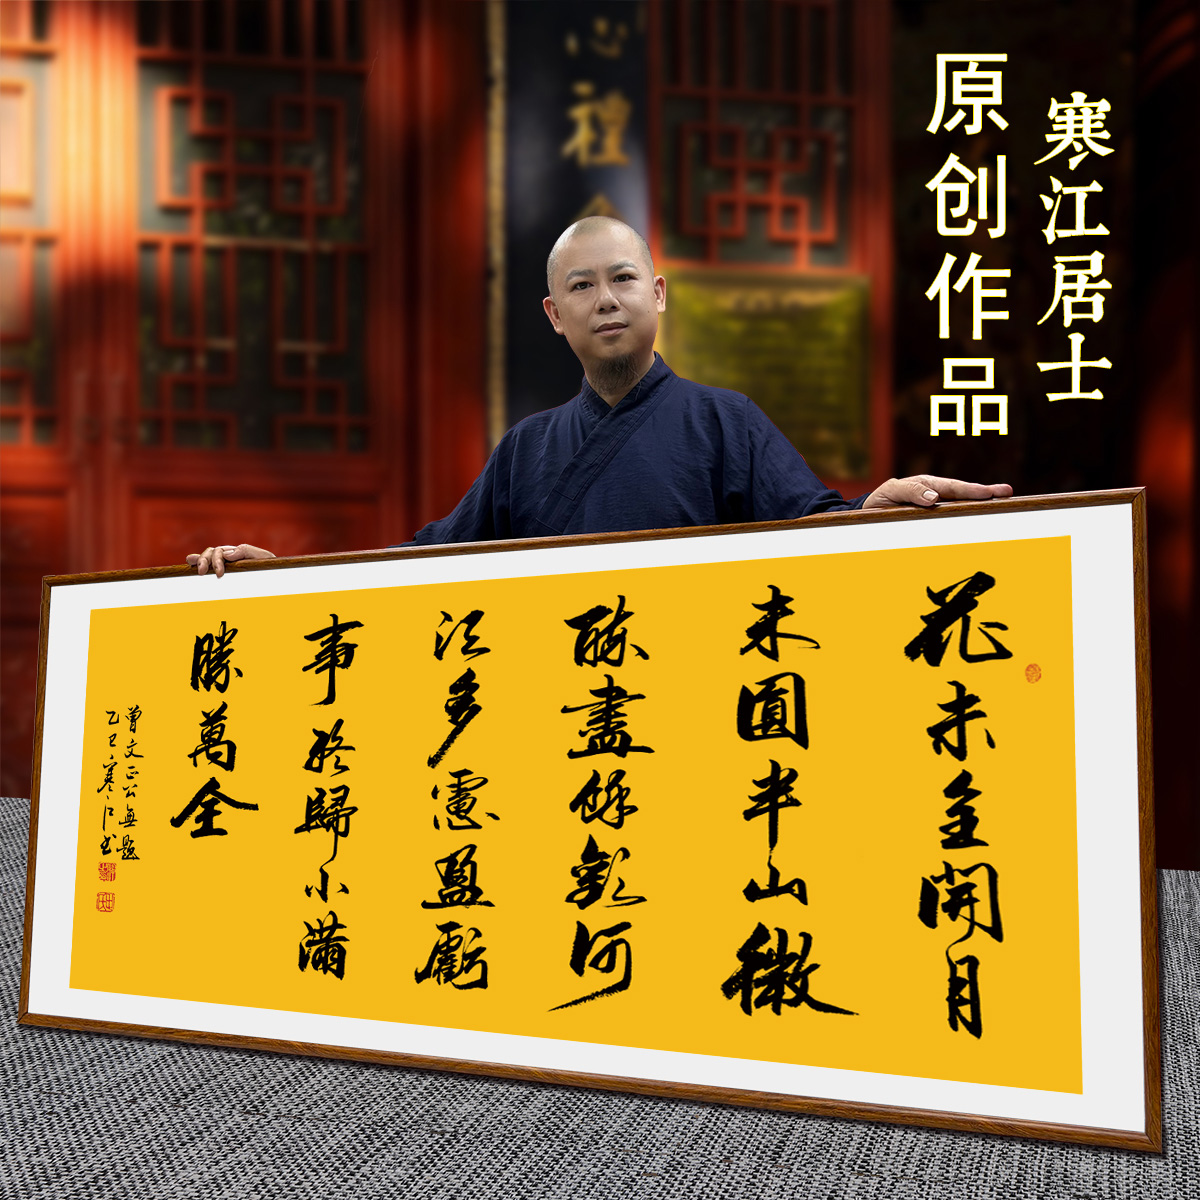 寒江居士
原创作品
心禮
花未全開月
未圓半山微
醉盡餘歡何
須多慮盈虧
事終歸小滿
勝萬全
曾文正公無題
乙巳寒江书